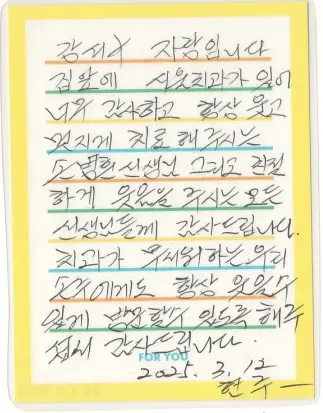 감사와 자랑입니다
집앞에 시옷치과가 있어
너무 감사하고 항상 웃고
멋지게 치료 해주시는
소범희 선생님 그리고 한결
하게 웃음을 주시는 모든
선생님들께 감사드립니다.
치과가 무서워하는 우리
손주에게도 항상 웃을수
있게 방문할수 있도록 해주
셔서 감사드립니다.
FOR YOU
2025. 3. 12
현주